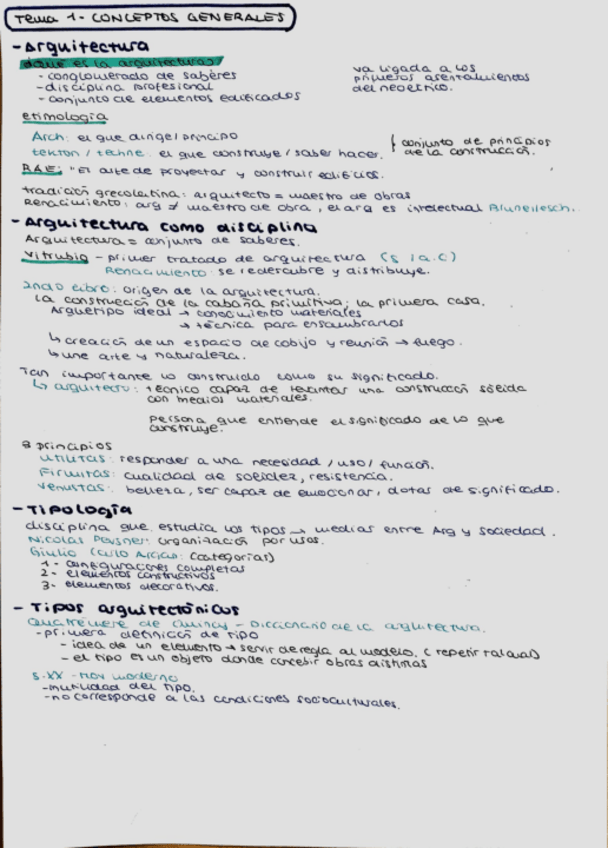 Tema 1 - CONCEPTOS GENERALES
- Arquitectura
¿qué es la arquitectura?
- conglomerado de saberes
- disciplina profesional
- conjunto de elementos edificados
va ligada a los
primeros asentamientos
del neolítico.
etimología
Arch: el que dirige / principio
tekton / techne: el que construye / saber hacer.
conjunto de principios
de la construcción.
RAE: "El arte de proyectar y construir edificios.
tradición grecolatina: arquitecto = maestro de obras
Renacimiento: arq ≠ maestro de obra, el arq es intelectual Brunellesch.
- Arquitectura como disciplina
Arquitectura = conjunto de saberes.
Vitrubio - primer tratado de arquitectura (s I a.C)
Renacimiento: se redescubre y distribuye.
2ndo libro: origen de la arquitectura.
La construcción de la cabaña primitiva; la primera casa.
Arquetipo ideal → conocimiento materiales
→ técnica para ensamblarlos
↳ creación de un espacio de cobijo y reunión → fuego.
↳ une arte y naturaleza.
Tan importante lo construido como su significado.
↳ arquitecto: técnico capaz de levantar una construcción sólida
con medios materiales.
Persona que entiende el significado de lo que
construye.
3 principios
Utilitas: responder a una necesidad / uso / función.
Firmitas: cualidad de solidez, resistencia.
Venustas: belleza, ser capaz de emocionar, dotas de significado.
- Tipología
disciplina que estudia los tipos → medias entre Arq y sociedad.
Nicolas Pevsner: organización por usos.
Giulio Carlo Argan: (categorías)
1 - configuraciones completas
2 - elementos constructivos
3 - elementos decorativos.
- Tipos arquitectónicos
Quatremere de Quincy - Diccionario de la arquitectura.
- primera definición de tipo
- idea de un elemento → servir de regla al modelo. (repetir tal cual)
- el tipo es un objeto donde concebir obras distintas
s. XX - Mov moderno
- inutilidad del tipo.
- no corresponde a las condiciones socioculturales.